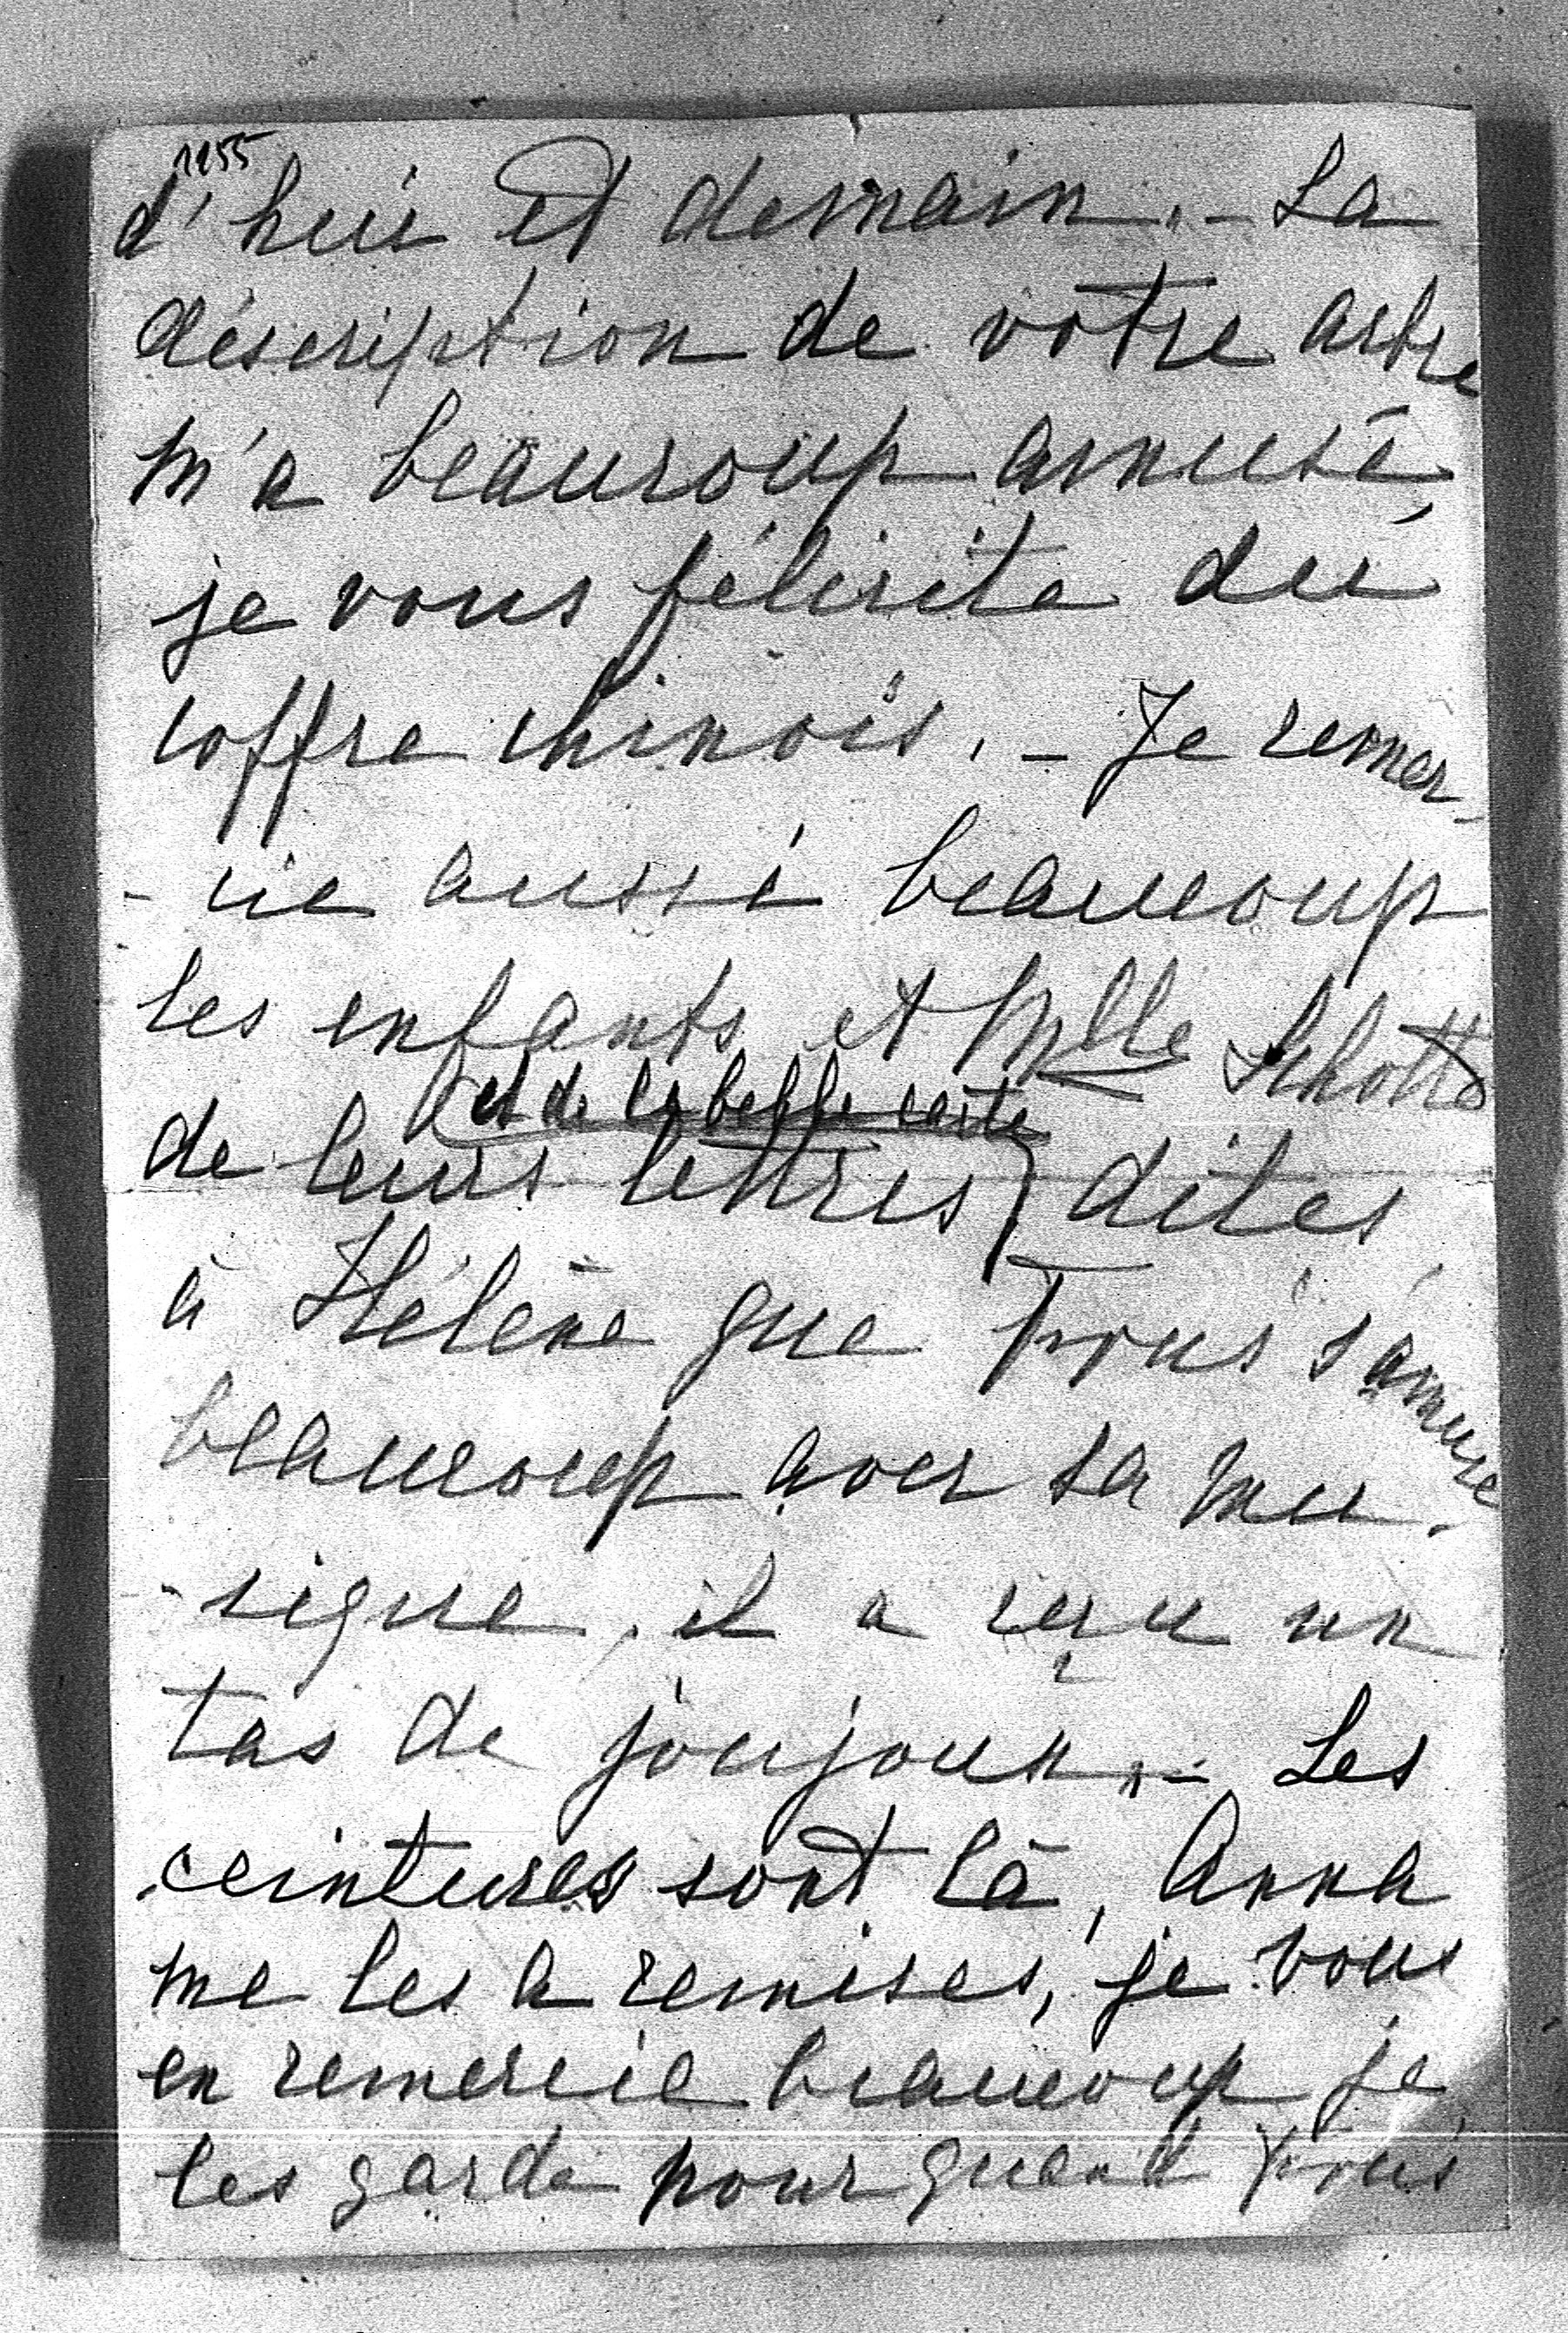 1255
d'hui et demain. – La
déscription de votre arbre
m'a beaucoup amusé,
je vous félicite du
coffre chinois. – Je remer-
- cie aussi beaucoup
les enfants et Mlle Schotte
et de la belle carte
de leurs lettres, dites
à Hélène que s'amuse
beaucoup avec sa mu-
- sique, il a reçu un
tas de joujoux. – Les
ceintures sont là, Anna
me les a remises, je vous
en remercie beaucoup je
les garde pour quand